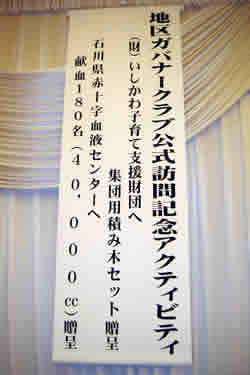 地区ガバナークラブ公式訪問記念アクティビティ
(財)いしかわ子育て支援財団へ
集団用積み木セット贈呈
石川県赤十字血液センターへ
献血180名(40,000cc)贈呈